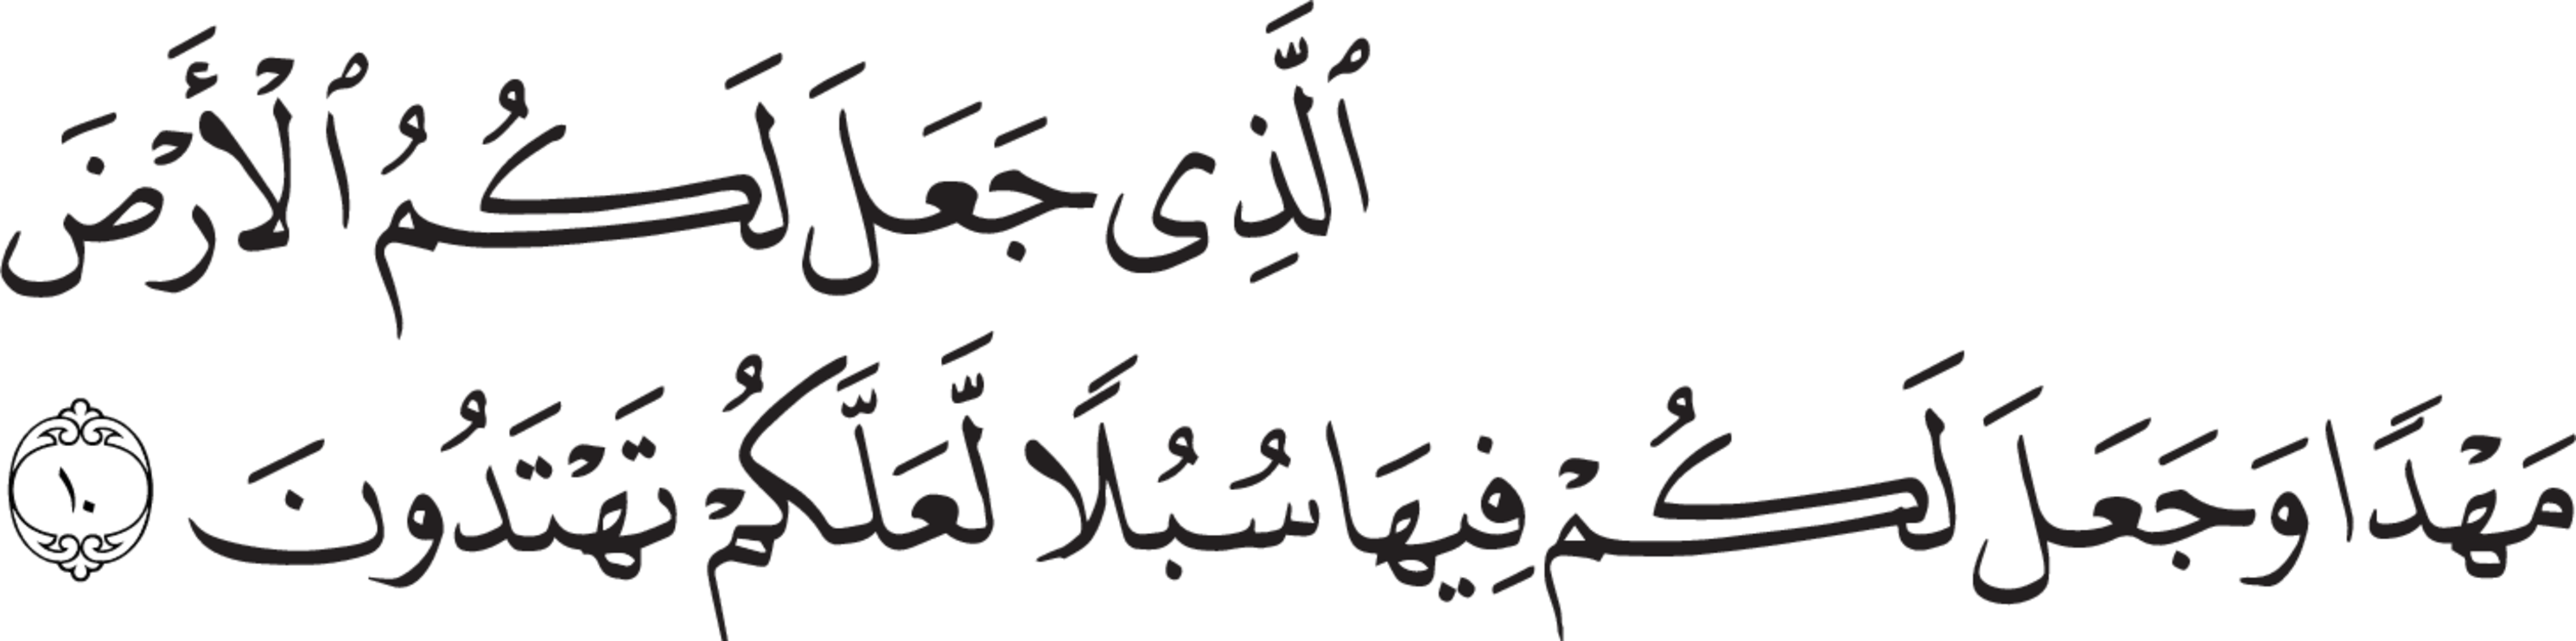 ٱلَّذِى جَعَلَ لَكُمُ ٱلْأَرْضَ
مَهْدًا وَجَعَلَ لَكُمْ فِيهَا سُبُلًا لَّعَلَّكُمْ تَهْتَدُونَ ١٠